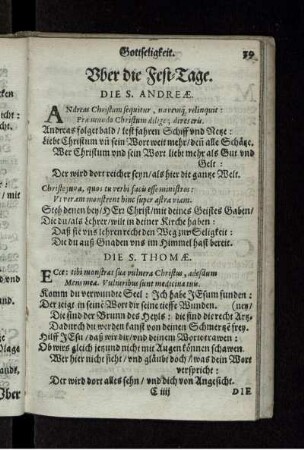 Gottseligkeit. 39
Vber die Fest-Tage.
DIE S. ANDREÆ.
ANdreas Christum sequitur, navemq; relinquit:
Præ mundo Christum dilige, dives eris.
Andreas folget bald / lest fahren Schiff vnd Netze:
Liebe Christum vñ sein Wort weit mehr / deñ alle Schätze.
Wer Christum vnd sein Wort liebt mehr als Gut vnd
Gelt:
Der wird dort reicher seyn / als hier die gantze Welt.
Christe juva, quos tu verbi facis esse ministros:
Vt veram monstrent hinc super astra viam.
Steh denen bey / HErr Christ / mit deines Geistes Gaben /
Die du / als Lehrer / wilt in deiner Kirche haben:
Daß sie vns lehren recht den Weg zur Seligkeit:
Die du auß Gnaden vns im Himmel hast bereit.
DIE S. THOMÆ.
ECce: tibi monstrat sua vulnera Christus, adesdum
Mens mea. Vulneribus sunt medicina tuis.
Komm du verwundte Seel: Ich habe JEsum funden:
Der zeigt in seinẽ Wort dir seine tieffe Wunden. (ney /
Die sind der Brunn des Heyls: die sind die recht Artz-
Dadurch du werden kanst von deinen Schmertzẽ frey.
Hilff JEsu / daß wir dir / vnd deinem Worte trawen:
Ob wir's gleich jetzund nicht mit Augen können schawen.
Wer hier nicht sieht / vnd gläubt doch / was dein Wort
verspricht:
Der wird dort alles sehn / vnd dich von Angesicht.
C iiij DIE